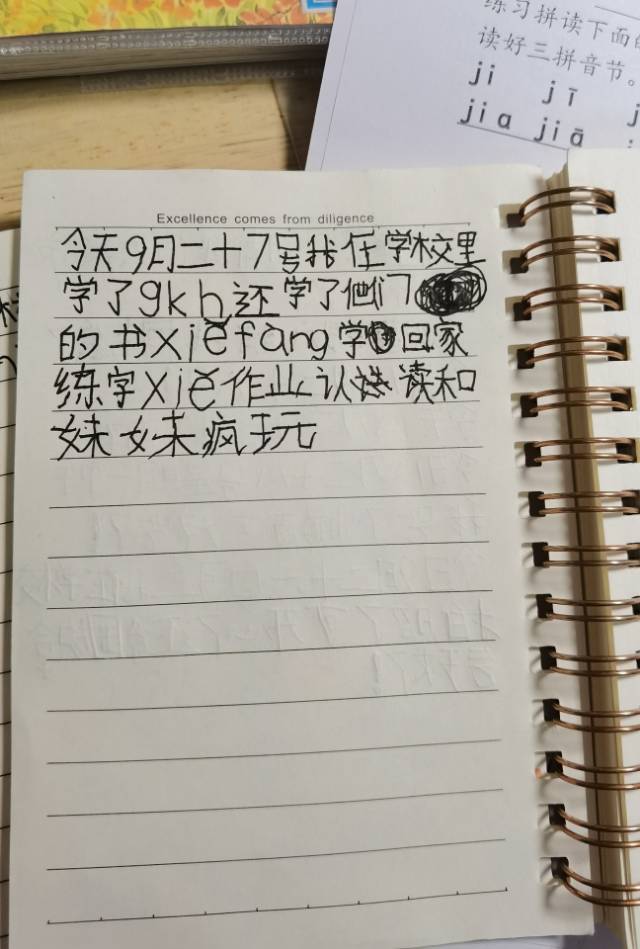 练习拼读下面的
读好三拼音节。
jī jī
jiɑ jiā
Excellence comes from diligence
今天9月二十7号我在学校里
学了gkh还学了他们
的书xiěfàng学回家
练字xiě作业认读和
妹妹疯玩